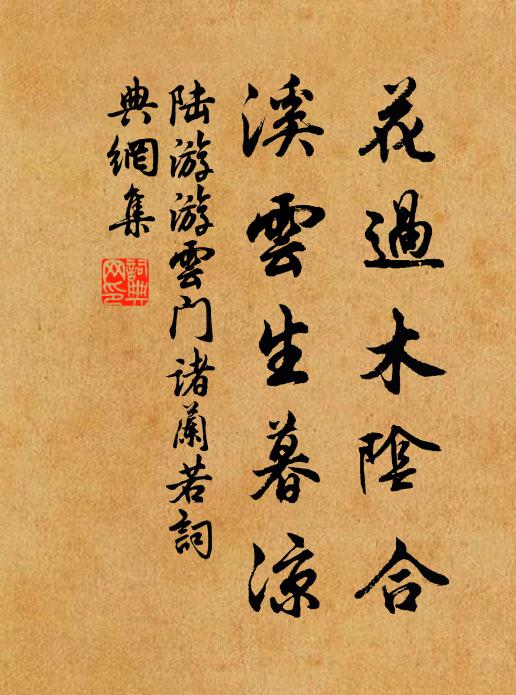 花過木陰合
溪雲生暮涼
陆游游雲门諸蘭若詞
典網集
詞典
网印